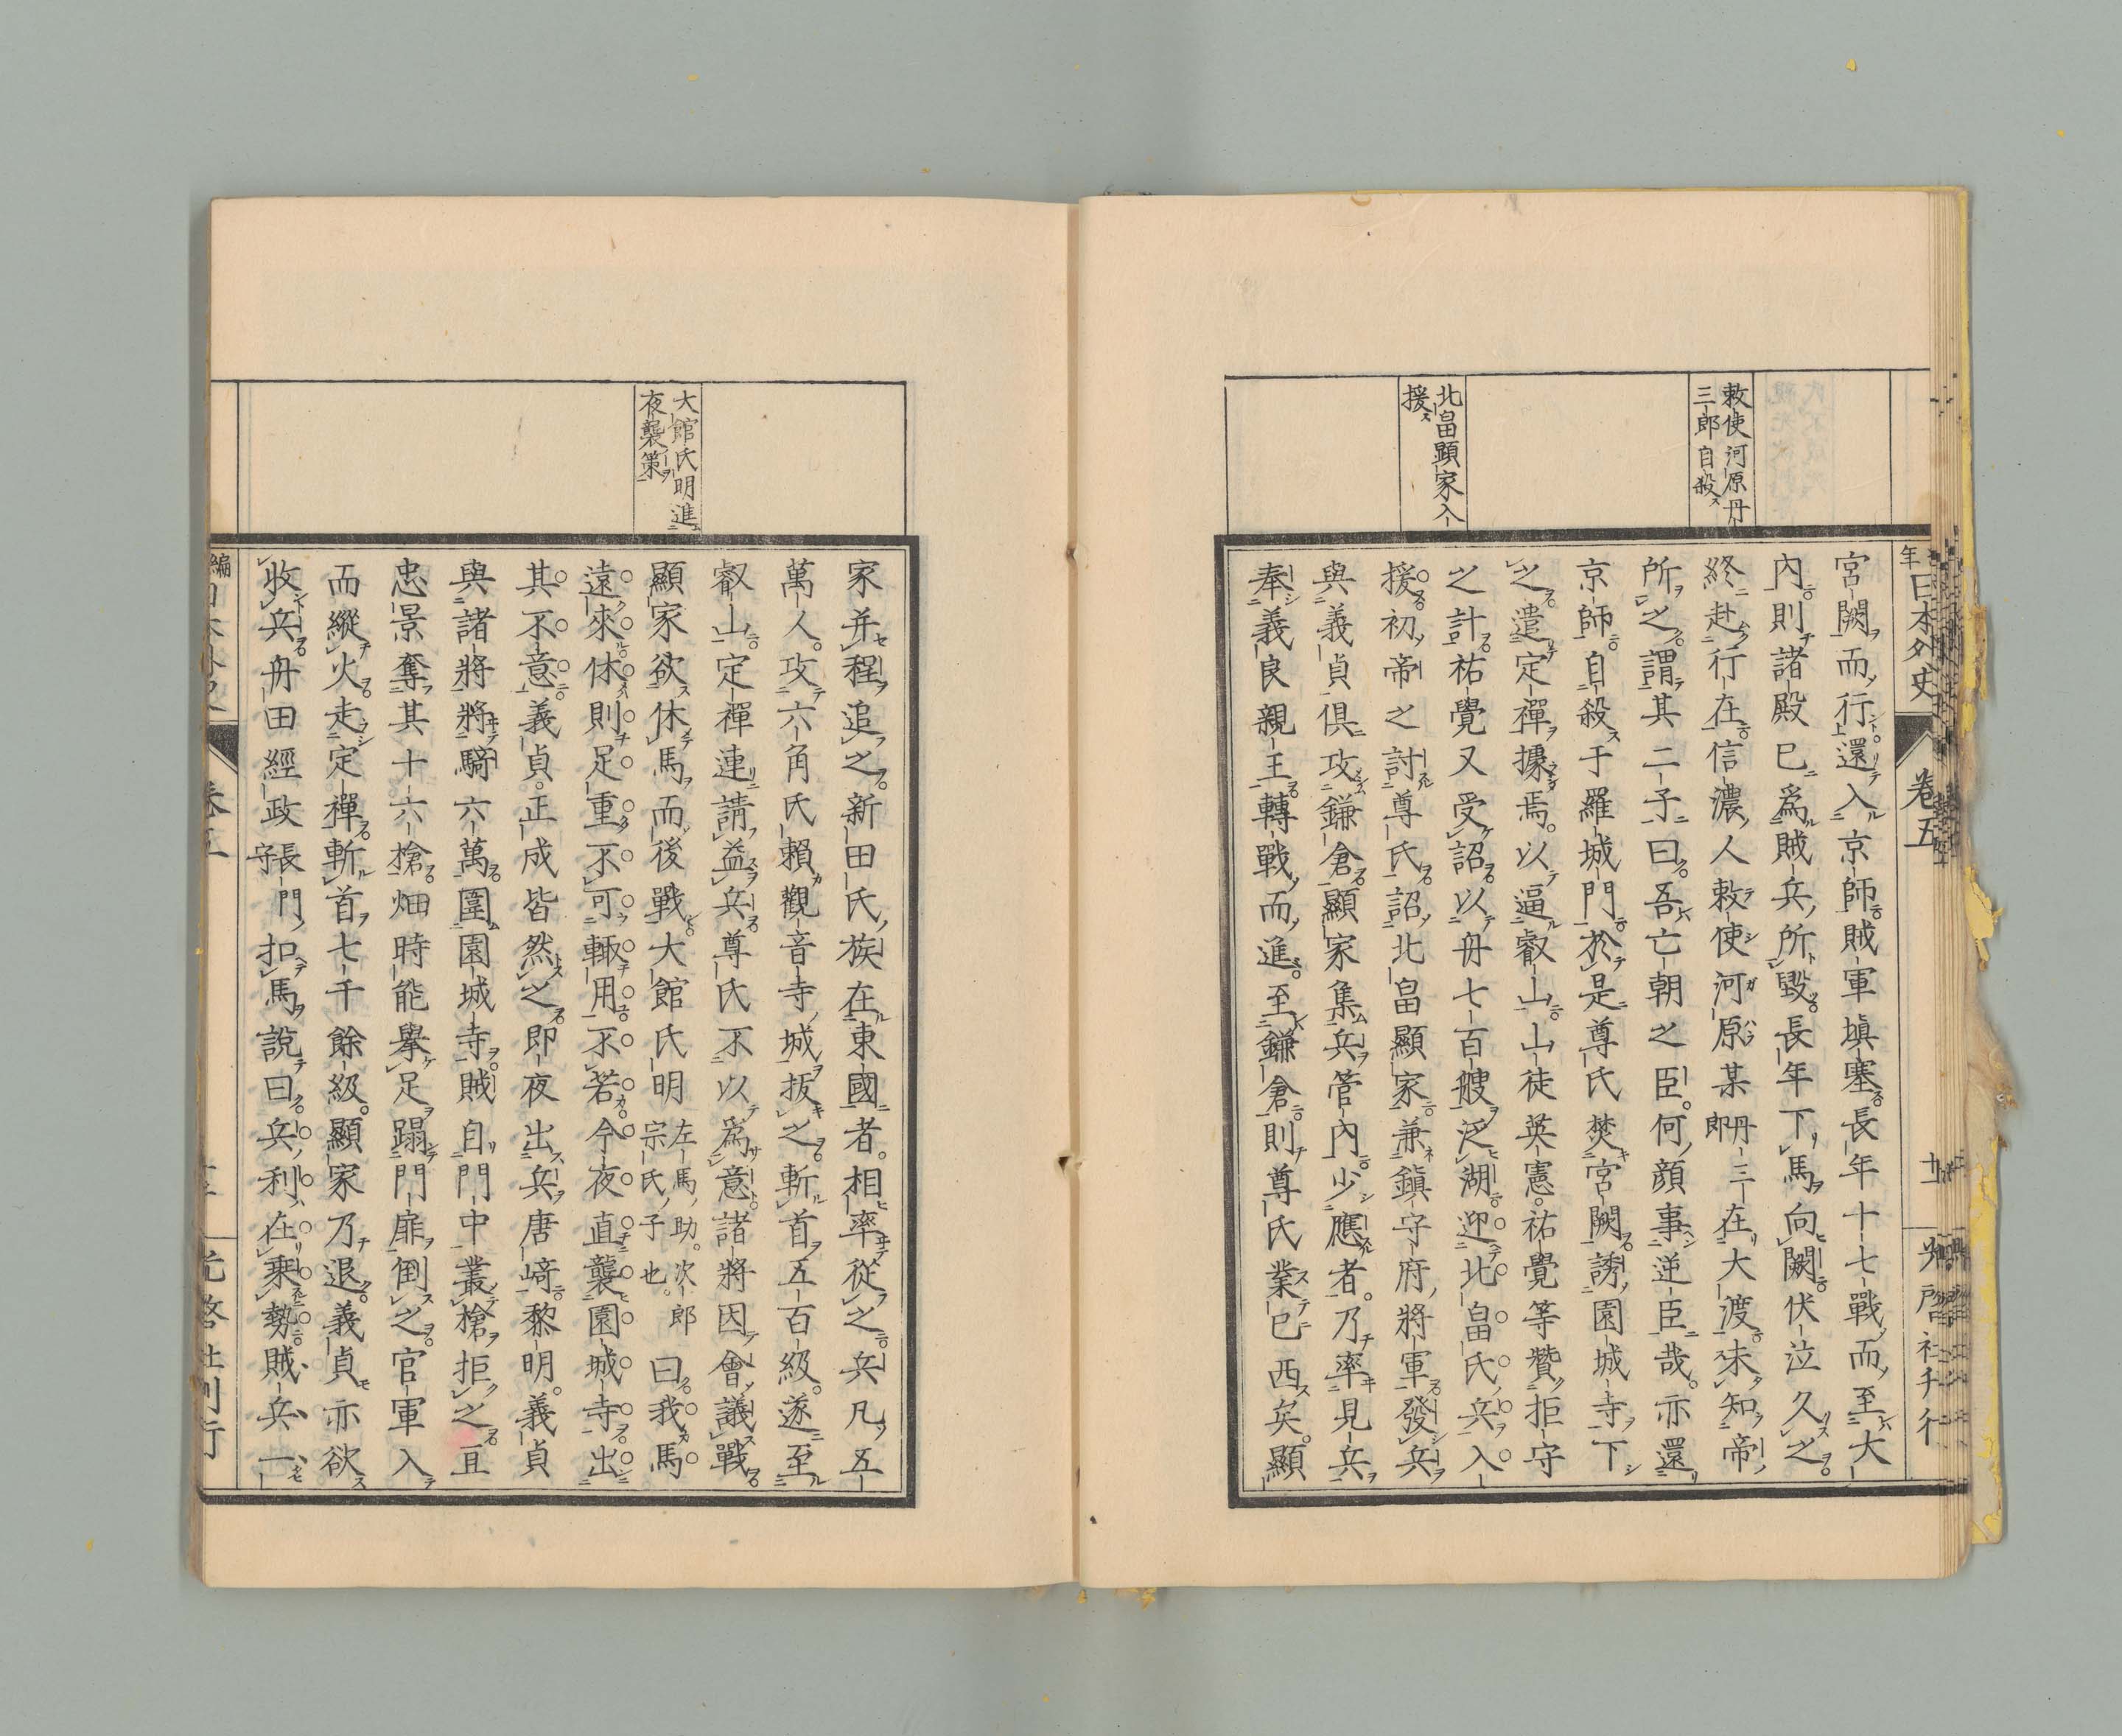 敕使河原丹
三郎自殺ス
北畠顯家入
援ス
年 日本外史 卷五
宮闕而行還入京師賊軍塡塞長年十七戰而至大
內則諸殿已爲賊兵所毀長年下馬向闕伏泣久之
終赴行在信濃人敕使河原某丹三郎在大渡未知帝
所之謂其二子曰吾亡朝之臣何顏事逆臣哉亦還
京師自殺于羅城門於是尊氏焚宮闕誘園城寺下
之遣定禪據焉以逼叡山山徒英憲祐覺等贊拒守
之計祐覺又受詔以舟七百艘泛湖迎北畠氏兵入
援初帝之討尊氏詔北畠顯家兼鎭守府將軍發兵
與義貞俱攻鎌倉顯家集兵管內少應者乃率見兵
奉義良親王轉戰而進至鎌倉則尊氏業已西矣顯
大館氏明進
夜襲策
家并程追之新田氏族在東國者相率從之兵凡五
萬人攻六角氏賴觀音寺城拔之斬首五百級遂至
叡山定禪連請益兵尊氏不以爲意諸將因會議戰
顯家欲休馬而後戰大館氏明左馬助次郎宗氏子也曰我馬
遠來休則足重不可輙用不若今夜直襲園城寺出
其不意義貞正成皆然之即夜出兵唐﨑黎明義貞
與諸將將騎六萬圍園城寺賊自門中叢槍拒之亘
忠景奪其十六槍畑時能擧足蹋門扉倒之官軍入
而縱火走定禪斬首七千餘級顯家乃退義貞亦欲
收兵舟田經政長門守扣馬說曰兵利在乘勢賊兵一